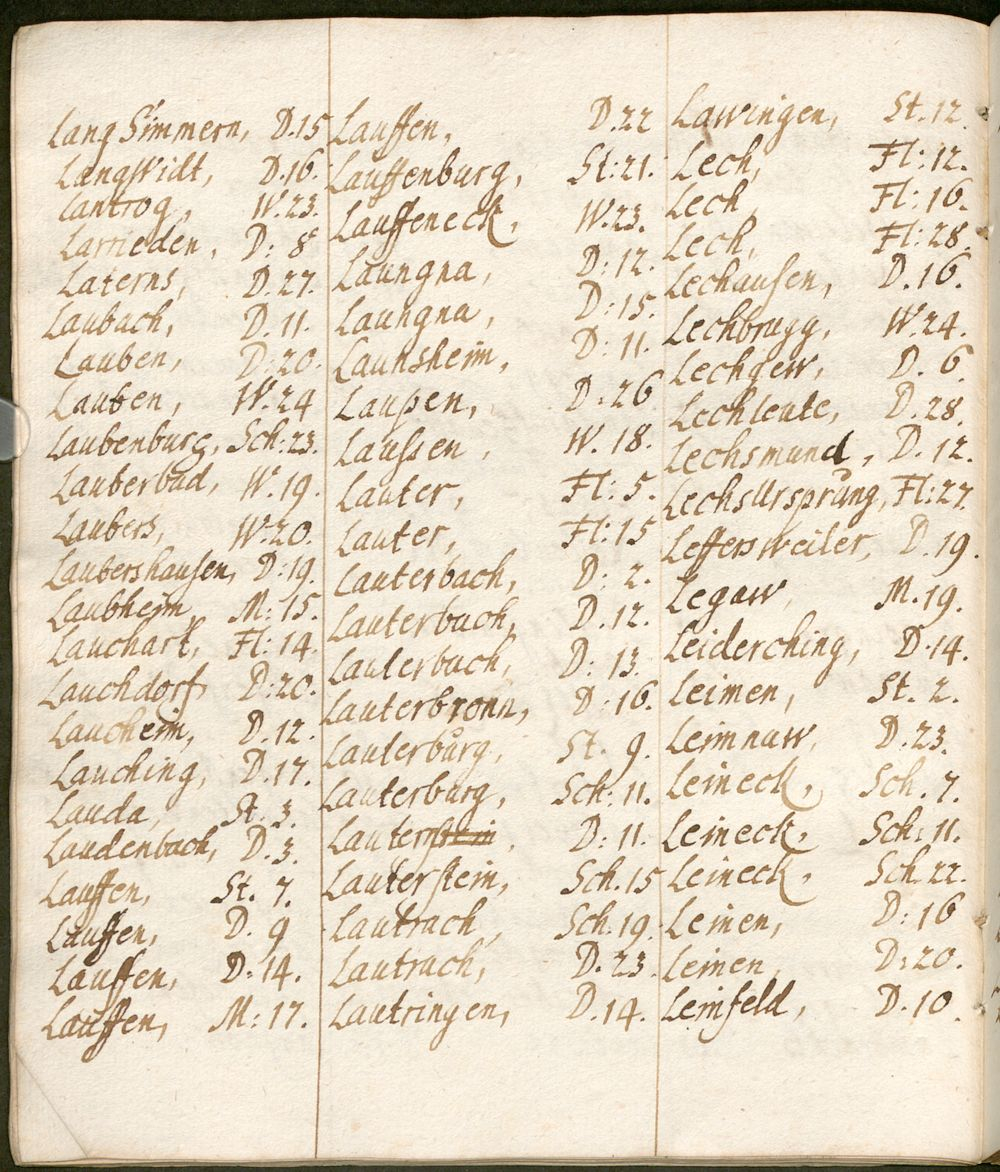 Lang Simmern, D.15
Langwidt, D.16.
Lantrog, W.23.
Larrieden, D: 8
Laterns, D.27.
Laubach, D.11.
Lauben, D:20.
Lauben, W.24
Laubenburg, Sch:23.
Lauberbad, W.19.
Laubers, W:20.
Laubershausen, D:19.
Laubheim, M:15.
Lauchart, Fl:14.
Lauchdorf, D:20.
Laucheim, D.12.
Lauching, D.17.
Lauda, St.3.
Laudenbach, D.3.
Lauffen, St.7.
Lauffen, D.9
Lauffen, D.14.
Lauffen, M:17.
Lauffen, D.22
Lauffenburg, St:21.
Lauffeneck, W.23.
Laungna, D:12.
Laungna, D:15.
Launsheim, D:11.
Laupen, D:26
Laussen, W.18.
Lauter, Fl:5.
Lauter, Fl:15
Lauterbach, D:2.
Lauterbach, D.12.
Lauterbach, D:13
Lauterbronn, D:16.
Lauterburg, St.9.
Lauterburg, Sch:11.
D:11.
Lauterstein, Sch.15
Lautrach, Sch.19.
Lautrach, D.23.
Lautringen, D.14.
Lawingen, St.12.
Lech, Fl:12.
Lech, Fl:16.
Lech, Fl:28.
Lechausen, D.16.
Lechbrugg, W.24.
Lechgew, D.6.
Lechleute, D.28.
Lechsmund, D.12.
LechsUrsprung, Fl:27.
Leffersweiler, D.19.
Legaw, M.19.
Leiderching, D.14.
Leimen, St.2.
Leimnaw, D.23.
Leineck, Sch.7.
Leineck, Sch:11.
Leineck, Sch.22.
Leinen, D:16
Leinen, D:20.
Leinfeld, D.10.